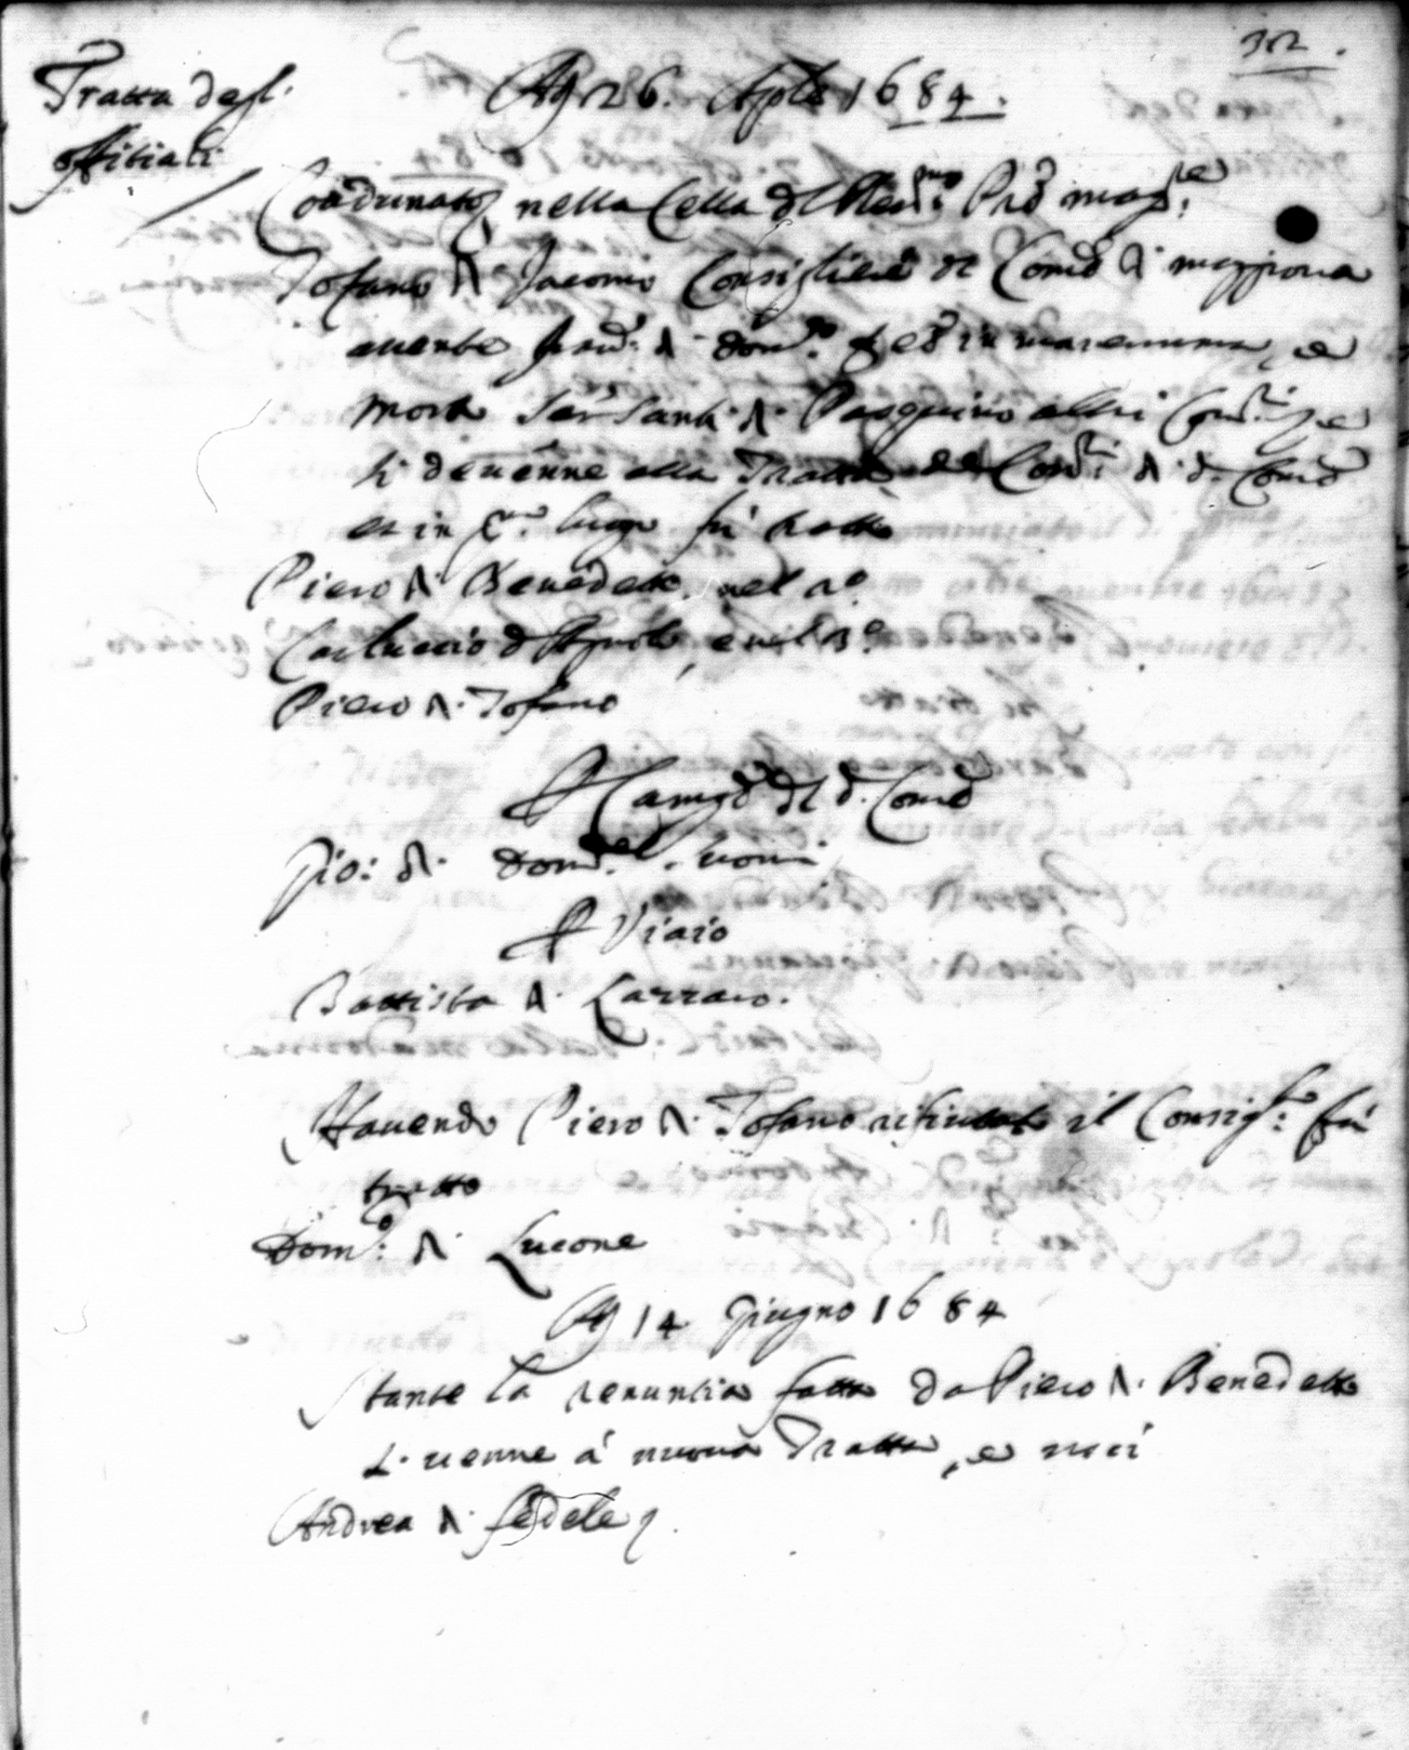 352.
Tratta degl'
offitiali
A dì 26. Aple 1684.
Coadunato nella Cella del Prē mag.re
Tofano di Jacomo Consigliere del Comē di
avente di Dom.co in maremma, e
morto Santi di Pasquino altri Con.ri e
si devenne alla Tratta de Con.ri di d. Comē
et in luogo fù tratto
Piero di Benedetto nel 2.o
Carluccio d' e nel 3.o
Piero di Tofano
P Camgō del d. Comē
Gio: di Dom.co
P Viaio
Battista di Lazzaro.
Havendo Piero di Tofano rifiutato il Consig.re fù
tratto
Dom.co di Lucone
A dì 14 Giugno 1684
Stante la renuntia fatta da Piero di Benedetto
s. venne à nuova Tratta, e uscì
Andrea di Fedele